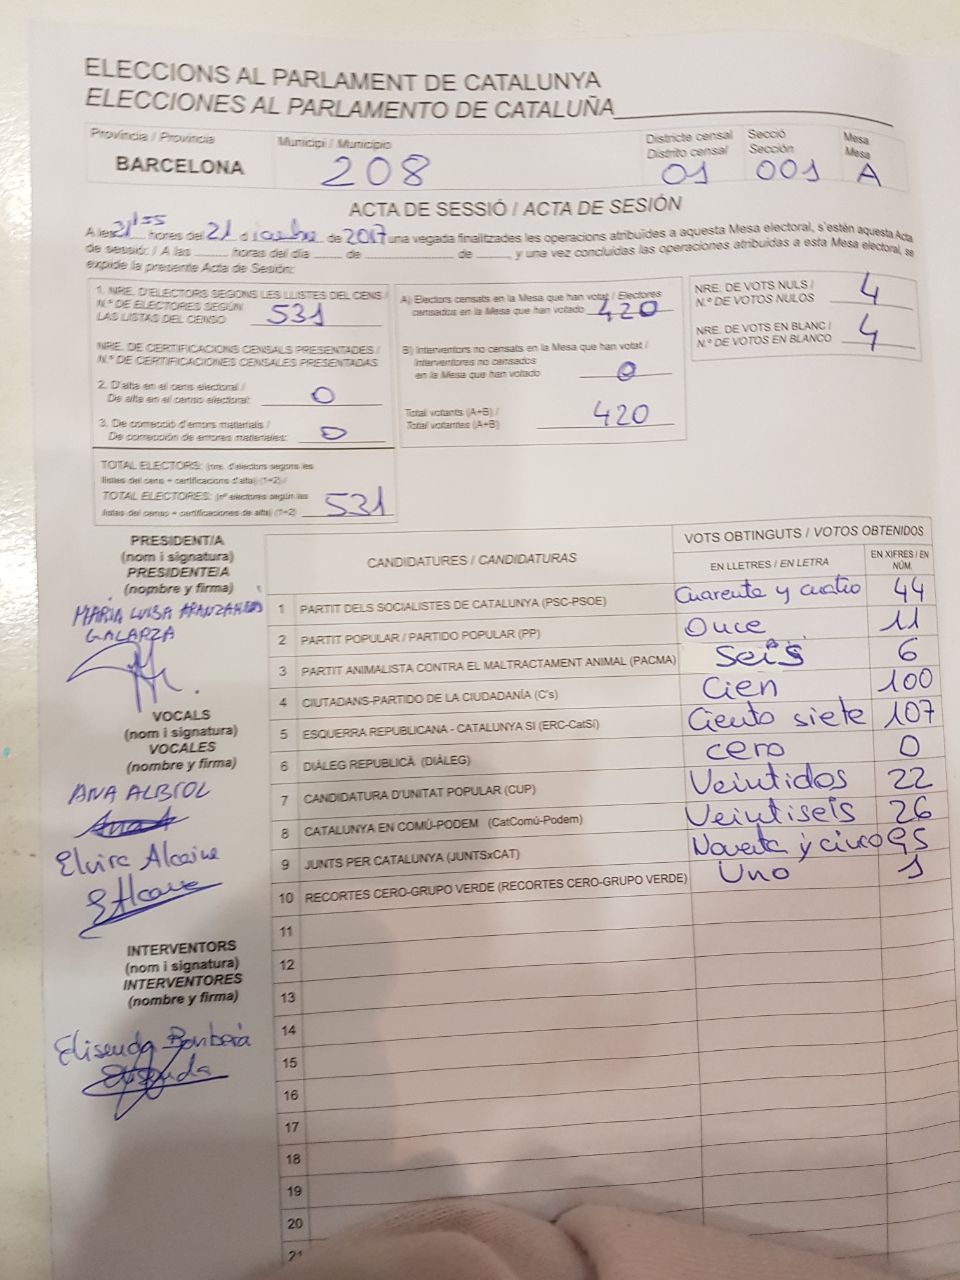 ELECCIONS AL PARLAMENT DE CATALUNYA
ELECCIONES AL PARLAMENTO DE CATALUÑA
Província / Provincia
BARCELONA
Municipi / Municipio
208
Districte censal
Distrito censal
01
Secció
Sección
001
Mesa
Mesa
A
ACTA DE SESSIÓ / ACTA DE SESIÓN
A les 21'55 hores del 21 d iciembre de 2017 una vegada finalitzades les operacions atribuïdes a aquesta Mesa electoral, s'estén aquesta Acta
de sessió: / A las ____ horas del día ____ de ____ de ____, y una vez concluidas las operaciones atribuidas a esta Mesa electoral, se
expide la presente Acta de Sesión:
1. NRE. D'ELECTORS SEGONS LES LLISTES DEL CENS /
N.º DE ELECTORES SEGÚN
LAS LISTAS DEL CENSO 531
NRE. DE CERTIFICACIONS CENSALS PRESENTADES /
N.º DE CERTIFICACIONES CENSALES PRESENTADAS
2. D'alta en el cens electoral /
De alta en el censo electoral: 0
3. De correcció d'errors materials /
De corrección de errores materiales: 0
TOTAL ELECTORS: (nre. d'electors segons les
llistes del cens + certificacions d'alta) (1+2) /
TOTAL ELECTORES: (nº electores según las
listas del censo + certificaciones de alta) (1+2) 531
A) Electors censats en la Mesa que han votat / Electores
censados en la Mesa que han votado 420
B) Interventors no censats en la Mesa que han votat /
Interventores no censados
en la Mesa que han votado 0
Total votants (A+B) /
Total votantes (A+B) 420
NRE. DE VOTS NULS /
N.º DE VOTOS NULOS 4
NRE. DE VOTS EN BLANC /
N.º DE VOTOS EN BLANCO 4
PRESIDENT/A
(nom i signatura)
PRESIDENTE/A
(nombre y firma)
MARIA LUISA
GALARZA
VOCALS
(nom i signatura)
VOCALES
(nombre y firma)
ANA ALBIOL
Elvira Alcaine
INTERVENTORS
(nom i signatura)
INTERVENTORES
(nombre y firma)
Elisenda
CANDIDATURES / CANDIDATURAS
VOTS OBTINGUTS / VOTOS OBTENIDOS
EN LLETRES / EN LETRA
EN XIFRES / EN
NÚM.
1 PARTIT DELS SOCIALISTES DE CATALUNYA (PSC-PSOE) Cuarenta y cuatro 44
2 PARTIT POPULAR / PARTIDO POPULAR (PP) Once 11
3 PARTIT ANIMALISTA CONTRA EL MALTRACTAMENT ANIMAL (PACMA) Seis 6
4 CIUTADANS-PARTIDO DE LA CIUDADANÍA (C's) Cien 100
5 ESQUERRA REPUBLICANA - CATALUNYA SI (ERC-CatSí) Ciento siete 107
6 DIÀLEG REPUBLICÀ (DIÀLEG) cero 0
7 CANDIDATURA D'UNITAT POPULAR (CUP) Veintidos 22
8 CATALUNYA EN COMÚ-PODEM (CatComú-Podem) Veintiseis 26
9 JUNTS PER CATALUNYA (JUNTSxCAT) Noventa y cinco 95
10 RECORTES CERO-GRUPO VERDE (RECORTES CERO-GRUPO VERDE) Uno 1
11
12
13
14
15
16
17
18
19
20
21